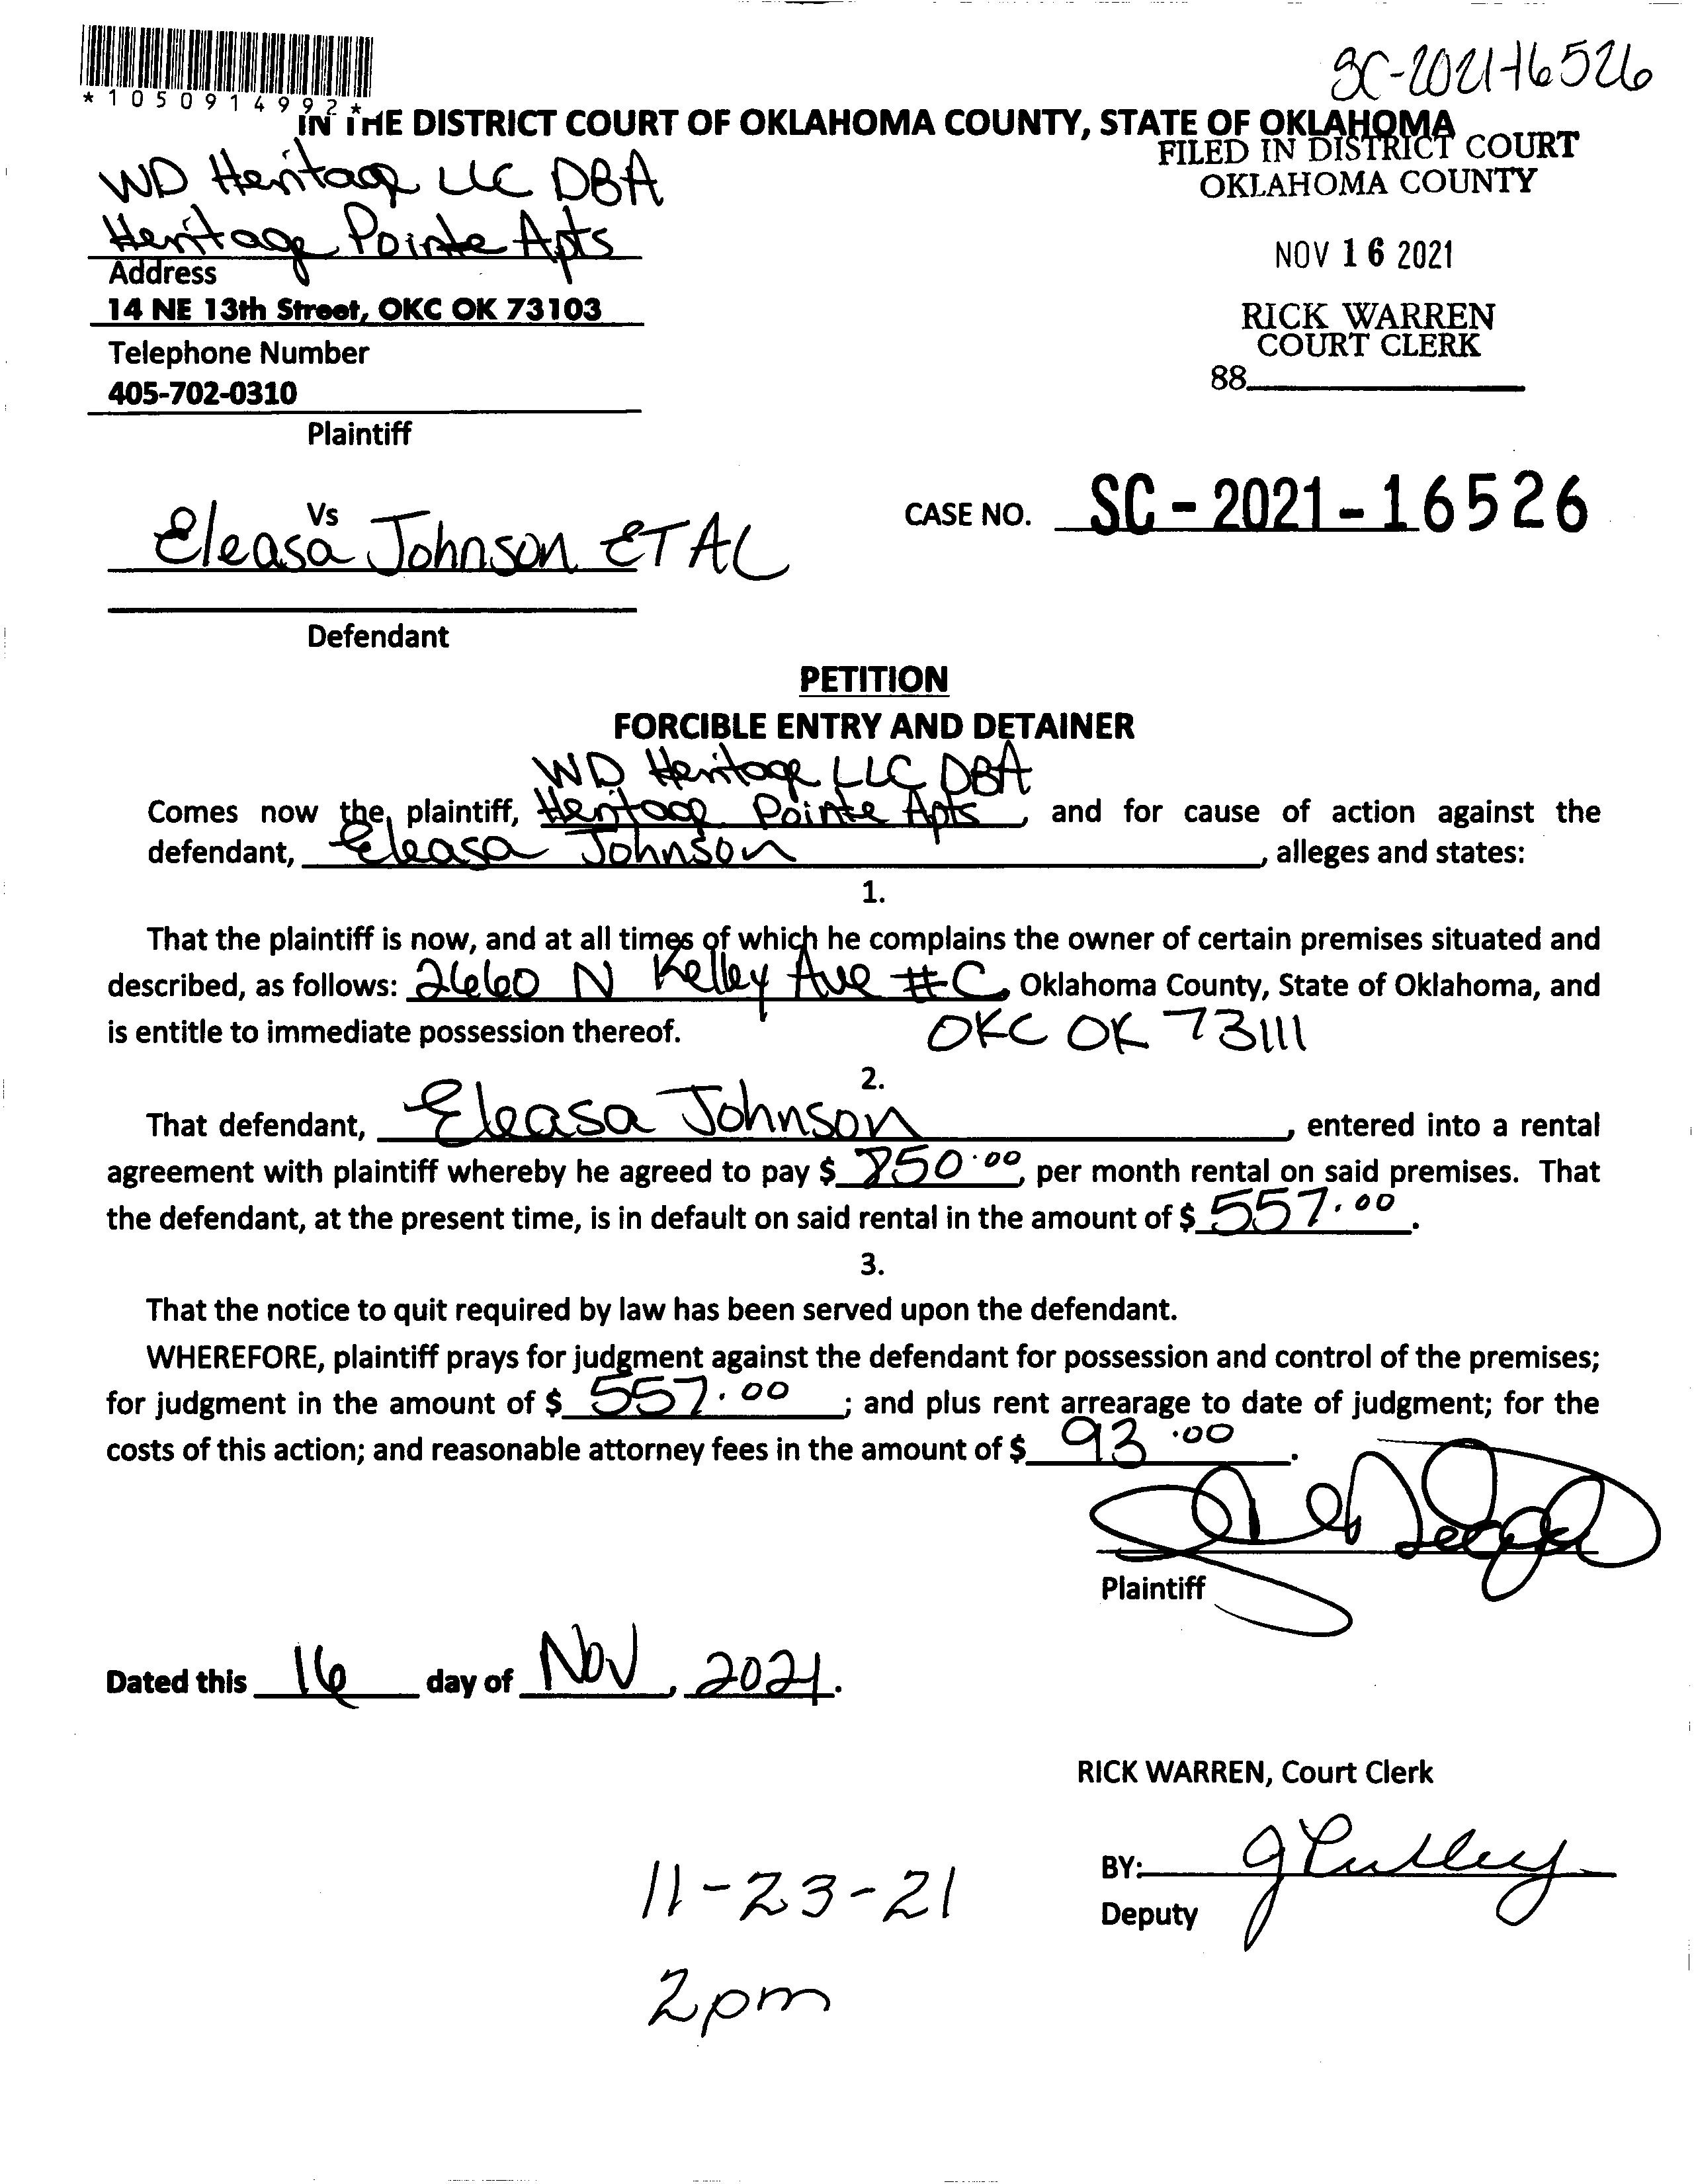 SC-2021-16526
*1050914992*
IN THE DISTRICT COURT OF OKLAHOMA COUNTY, STATE OF OKLAHOMA
FILED IN DISTRICT COURT
OKLAHOMA COUNTY
NOV 16 2021
RICK WARREN
COURT CLERK
88
WD Heritage LLC DBA
Heritage Pointe Apts
Address
14 NE 13th Street, OKC OK 73103
Telephone Number
405-702-0310
Plaintiff
Vs
Eleasa Johnson ET AL
CASE NO. SC-2021-16526
Defendant
PETITION
FORCIBLE ENTRY AND DETAINER
WD Heritage LLC DBA
Comes now the plaintiff, Heritage Pointe Apts, and for cause of action against the
defendant, Eleasa Johnson, alleges and states:
1.
That the plaintiff is now, and at all times of which he complains the owner of certain premises situated and
described, as follows: 2660 N Kelley Ave #C, Oklahoma County, State of Oklahoma, and
is entitle to immediate possession thereof. OKC OK 73111
2.
That defendant, Eleasa Johnson, entered into a rental
agreement with plaintiff whereby he agreed to pay $ 850.00, per month rental on said premises. That
the defendant, at the present time, is in default on said rental in the amount of $ 557.00.
3.
That the notice to quit required by law has been served upon the defendant.
WHEREFORE, plaintiff prays for judgment against the defendant for possession and control of the premises;
for judgment in the amount of $ 557.00; and plus rent arrearage to date of judgment; for the
costs of this action; and reasonable attorney fees in the amount of $ 93.00.
Plaintiff
Dated this 16 day of Nov, 2021.
RICK WARREN, Court Clerk
BY:
Deputy
11-23-21
2pm